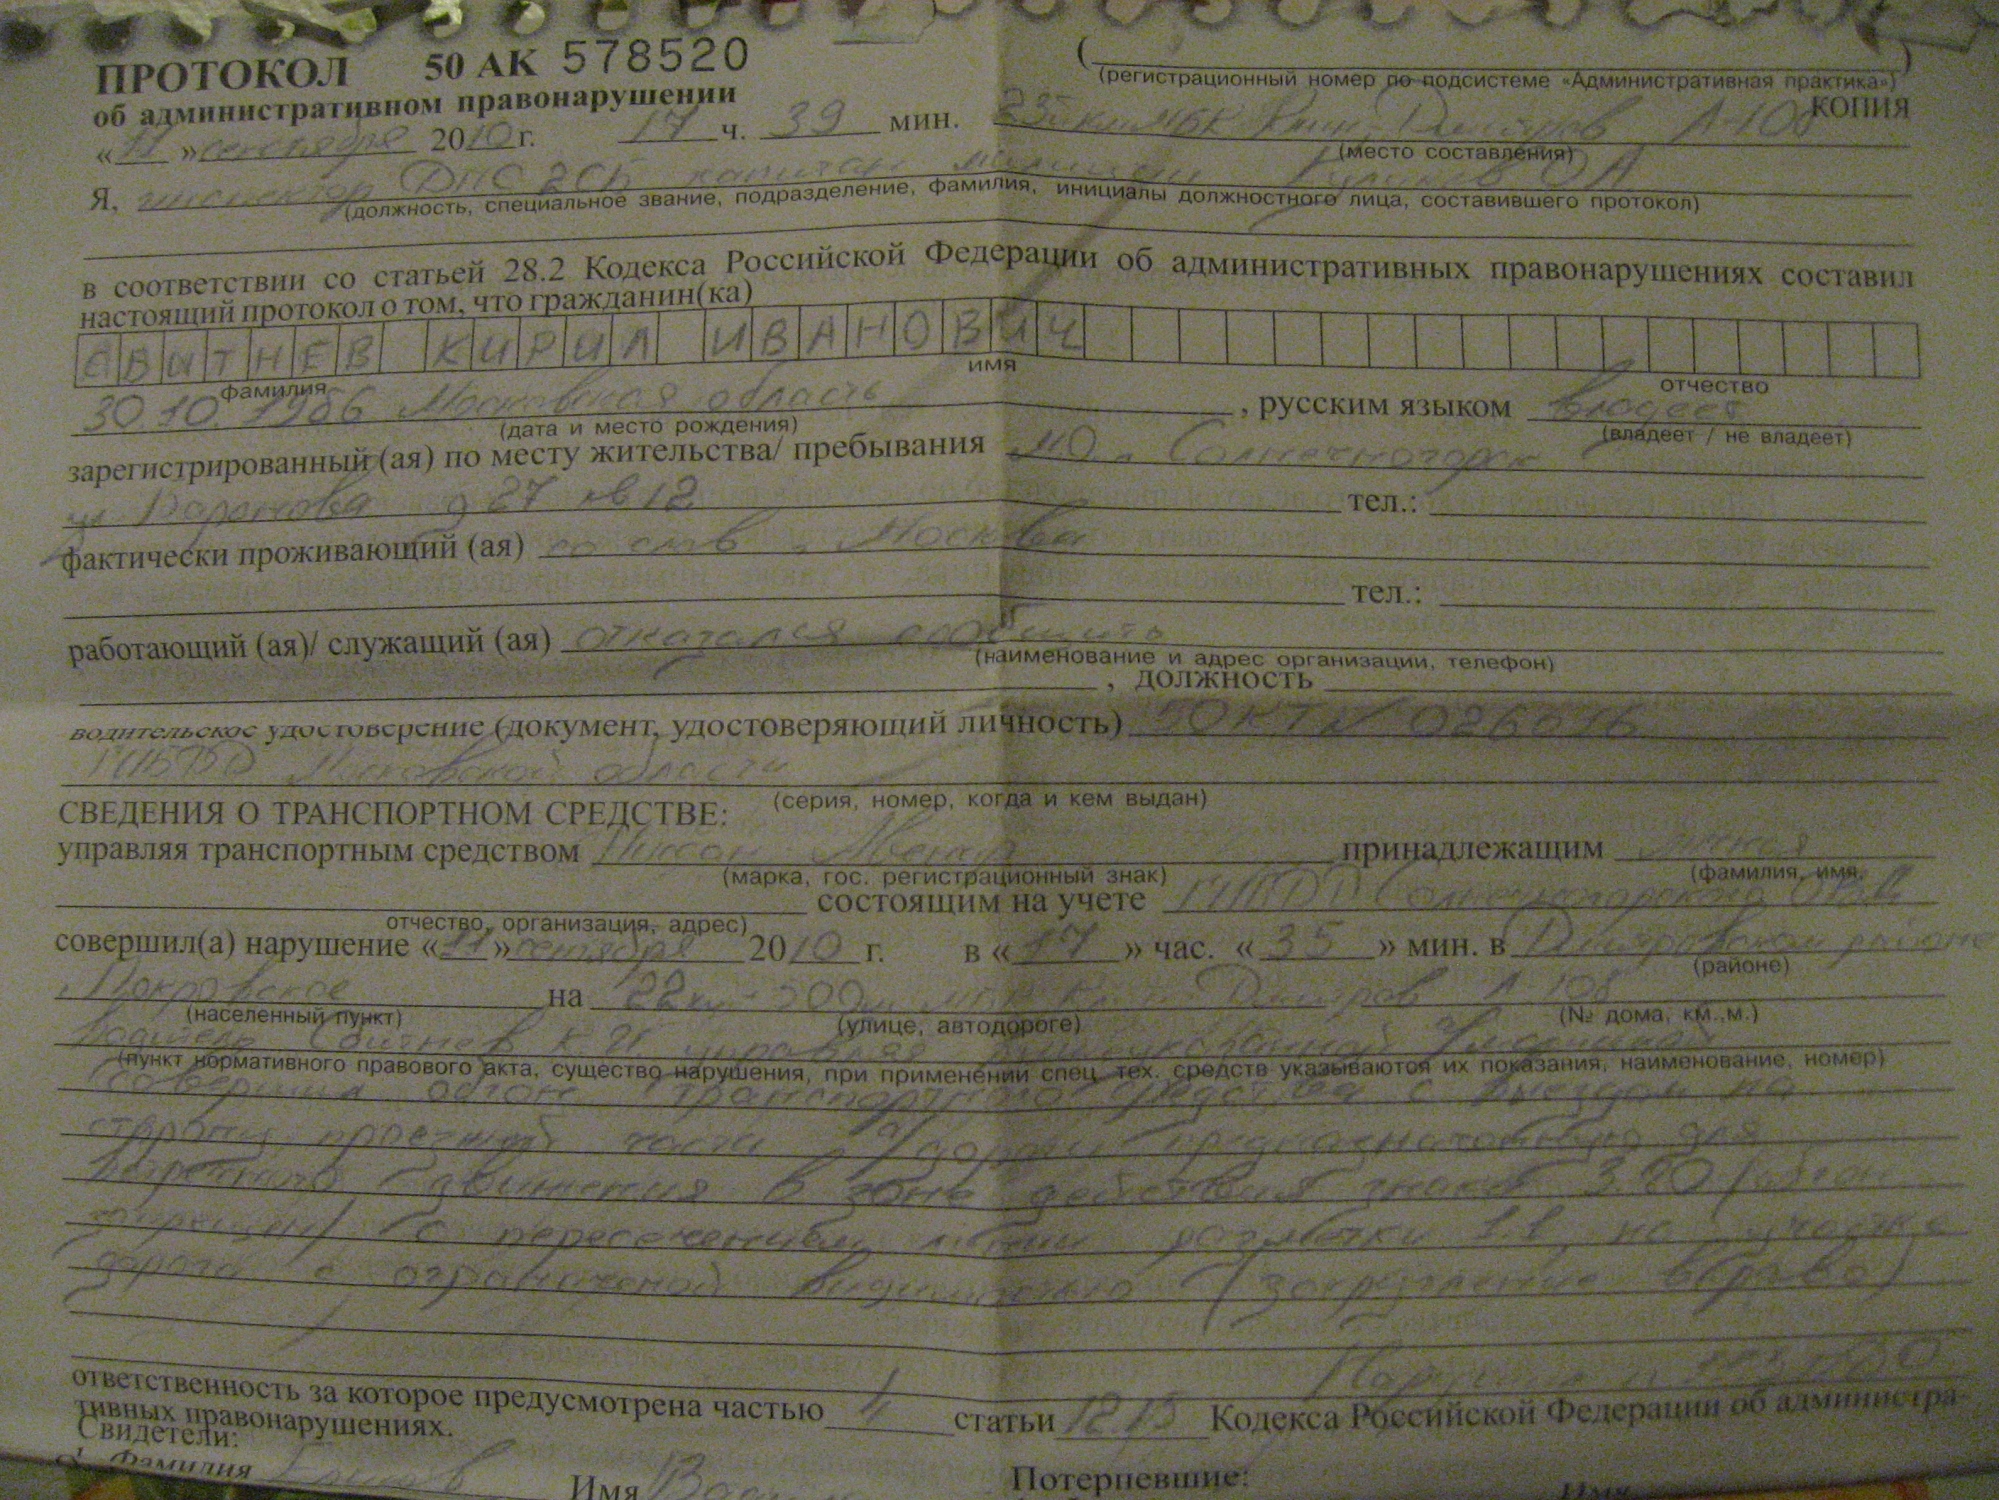 ПРОТОКОЛ 50 АК 578520
об административном правонарушении
(регистрационный номер по подсистеме «Административная практика»)
КОПИЯ
«11» сентября 2010 г. 17 ч. 39 мин. Дмитров А-108
(место составления)
Я, инспектор ДПС 2СБ капитан милиции
(должность, специальное звание, подразделение, фамилия, инициалы должностного лица, составившего протокол)
в соответствии со статьей 28.2 Кодекса Российской Федерации об административных правонарушениях составил
настоящий протокол о том, что гражданин(ка)
СВИТНЕВ КИРИЛ ИВАНОВИЧ
фамилия имя отчество
30.10.1986 Московская область , русским языком владеет
(дата и место рождения) (владеет / не владеет)
зарегистрированный (ая) по месту жительства/ пребывания МО г. Солнечногорск
д 27 кв 12 тел.:
фактически проживающий (ая) Москва
тел.:
работающий (ая)/ служащий (ая) отказался сообщить
(наименование и адрес организации, телефон)
, должность
водительское удостоверение (документ, удостоверяющий личность) 50 КТ № 026616
ГИБДД Московской области
(серия, номер, когда и кем выдан)
СВЕДЕНИЯ О ТРАНСПОРТНОМ СРЕДСТВЕ:
управляя транспортным средством Ниссан принадлежащим
(марка, гос. регистрационный знак) (фамилия, имя,
состоящим на учете ГИБДД Солнечногорского ОВД
отчество, организация, адрес)
совершил(а) нарушение «11» сентября 2010 г. в «17» час. «35» мин. в Дмитровском районе
(районе)
Покровское на 22км Дмитров А 108
(населенный пункт) (улице, автодороге) (№ дома, км.,м.)
водитель Свитнев К И управляя вышеуказанной
(пункт нормативного правового акта, существо нарушения, при применении спец. тех. средств указываются их показания, наименование, номер)
совершил обгон транспортного средства с выездом на
сторону проезжей части а/дороги предназначенную для
встречного движения в зоне действия знака 3.20 (обгон
запрещен) с пересечением линии разметки 1.1, на участке
дороги с ограниченой видимостью (закругление вправо)
Нарушил п
ответственность за которое предусмотрена частью 4 статьи 12.15 Кодекса Российской Федерации об администра-
тивных правонарушениях.
Свидетели:
Фамилия Имя Потерпевшие:
Имя